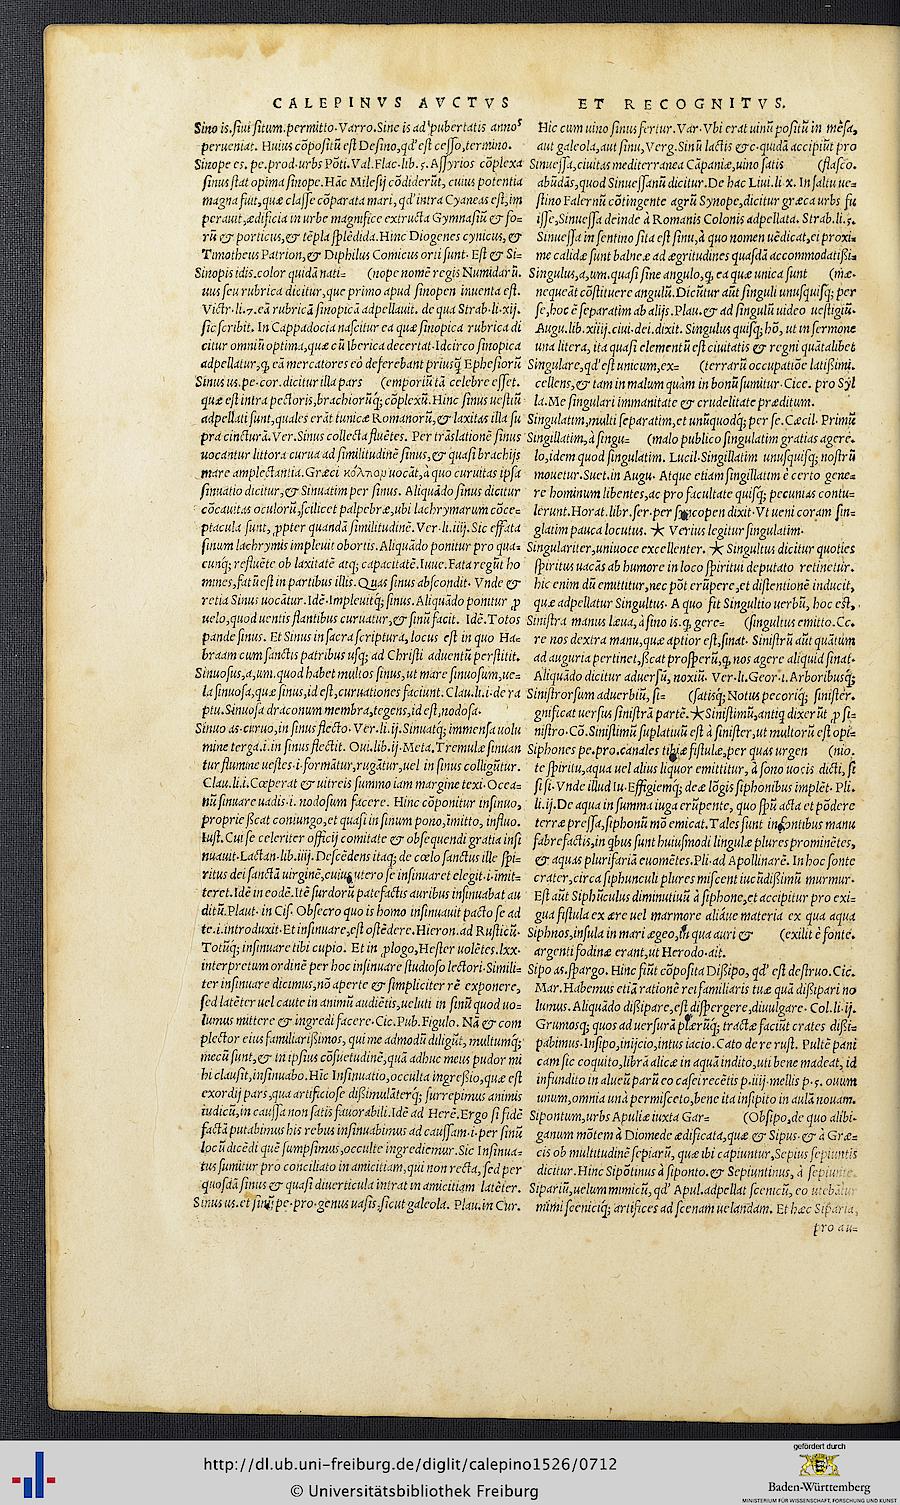 CALEPINVS AVCTVS
Sino is.siui situm.permitto.Varro.Sine is ad pubertatis annos
perueniat. Huius cōpositū est Desino,qd' est cesso,termino.
Sinope es. pe.prod.urbs Pōti.Val.Flac.lib.5.Assyrios cōplexa
sinus stat opima sinope.Hāc Milesij cōdiderūt, cuius potentia
magna fuit,quæ classe cōparata mari, qd' intra Cyaneas est,im
perauit,ædificia in urbe magnifice extructa Gymnasiū & fo-
rū & porticus,& tēpla splēdida.Hinc Diogenes cynicus, &
Timotheus Patrion,& Diphilus Comicus orii sunt. Est & Si-
Sinopis idis.color quidā nati- (nope nomē regis Numidarū.
uus seu rubrica dicitur,que primo apud sinopen inuenta est.
Victr.li.7.eā rubricā sinopicā adpellauit. de qua Strab.li.xij.
sic scribit. In Cappadocia nascitur ea quæ sinopica rubrica di
citur omniū optima,quæ cū Iberica decertat.Idcirco sinopica
adpellatur,q, eā mercatores eò deferebant priusq̄ Ephesiorū
Sinus us.pe.cor.dicitur illa pars (emporiū tā celebre esset.
quæ est intra pectoris,brachiorūq; cōplexū.Hinc sinus uestiū
adpellati sunt,quales erāt tunicæ Romanorū,& laxitas illa su
pra cincturā.Ver.Sinus collecta fluētes. Per trāslationē sinus
uocantur littora curua ad similitudinē sinus,& quasi brachijs
mare amplectantia.Græci κόλπον uocāt,à quo curuitas ipsa
sinuatio dicitur,& Sinuatim per sinus. Aliquādo sinus dicitur
cōcauitas oculorū,scilicet palpebræ,ubi lachrymarum cōce-
ptacula sunt, ꝓpter quandā similitudinē.Ver.li.iiij.Sic effata
sinum lachrymis impleuit obortis.Aliquādo ponitur pro qua-
cunq; refluēte ob laxitatē atq; capacitatē.Iuue.Fata regūt ho
mines,fatū est in partibus illis.Quas sinus abscondit. Vnde &
retia Sinus uocātur.Idē.Impleuitq; sinus.Aliquādo ponitur ꝓ
uelo,quod uentis flantibus curuatur,& sinū facit. Idē.Totos
pande sinus. Et Sinus in sacra scriptura, locus est in quo Ha-
braam cum sanctis patribus usq; ad Christi aduentū perstitit.
Sinuosus,a,um.quod habet multos sinus,ut mare sinuosum,ue-
la sinuosa,quæ sinus,id est,curuationes faciunt. Clau.li.i.de ra
ptu.Sinuosa draconum membra,tegens,id est,nodosa.
Sinuo as.curuo,in sinus flecto. Ver.li.ij.Sinuatq; immensa uolu
mine terga.i.in sinus flectit. Oui.lib.ij.Meta.Tremulæ sinuan
tur flumine uestes.i.formātur,rugātur,uel in sinus colligūtur.
Clau.li.i.Cœperat & uitreis summo iam margine texi.Ocea-
nū sinuare uadis.i. nodosum facere. Hinc cōponitur insinuo,
proprie scat coniungo,et quasi in sinum pono,imitto, influo.
Iust.Cui se celeriter officij comitate & obsequendi gratia insi
nuauit.Lactan.lib.iiij.Descēdens itaq; de cœlo sanctus ille spi-
ritus dei sanctā uirginē,cuius utero se insinuaret elegit.i.imit-
teret.Idē in eodē.Itē surdorū patefactis auribus insinuabat au
ditū.Plaut. in Cis. Obsecro quo is homo insinuauit pacto se ad
te.i.introduxit.Et insinuare,est ostēdere.Hieron.ad Rusticū.
Totūq; insinuare tibi cupio. Et in ꝓlogo,Hester uolētes.lxx.
interpretum ordinē per hoc insinuare studioso lectori.Simili-
ter insinuare dicimus,nō aperte & simpliciter rē exponere,
sed latēter uel caute in animū audiētis,ueluti in sinū quod uo-
lumus mittere & ingredi facere.Cic.Pub.Figulo. Nā & com
plector eius familiarißimos, qui me admodū diligūt, multumq;
mecū sunt,& in ipsius cōsuetudinē,quā adhuc meus pudor mi
hi clausit,insinuabo.Hic Insinuatio,occulta ingreßio,quæ est
exordij pars,qua artificiose dißimulāterq; surrepimus animis
iudicū,in caussa non satis fauorabili.Idē ad Herē.Ergo si fidē
factā putabimus his rebus insinuabimus ad caussam.i.per sinū
locū dicēdi quē sumpsimus,occulte ingrediemur.Sic Insinua-
tus sumitur pro conciliato in amicitiam,qui non recta,sed per
quosdā sinus & quasi diuerticula intrat in amicitiam latēter.
Sinus us.et sinū; pe.pro.genus uasis.sicut galeola. Plau.in Cur.
ET RECOGNITVS.
Hic cum uino sinus fertur.Var.Vbi erat uinū positū in mēsa,
aut galeola,aut sinu,Verg.Sinū lactis &c.quidā accipiūt pro
Sinuessa,ciuitas mediterranea Cāpaniæ,uino satis (flasco.
abūdās,quod Sinuessanū dicitur.De hac Liui.li.x. In saltu ue-
stino Falernū cōtingente agrū Synope,dicitur græca urbs fu
isse,Sinuessa deinde à Romanis Colonis adpellata. Strab.li.5.
Sinuessa in sentino sita est sinu,à quo nomen uēdicat,ei proxi-
me calidæ sunt balneæ ad ægritudines quasdā accommodatißi-
Singulus,a,um.quasi sine angulo,q, ea quæ unica sunt (mæ.
nequeāt cōstituere angulū.Dicūtur aūt singuli unusquisq; per
se,hoc è separatim ab alijs.Plau.& ad singulū uideo uestigiū.
Augu.lib.xiiij.ciui.dei.dixit. Singulus quisq; hō, ut in sermone
una litera, ita quasi elementū est ciuitatis & regni quātalibet
Singulare,qd' est unicum,ex- (terrarū occupatiōe latißimi.
cellens,& tam in malum quàm in bonū sumitur.Cice. pro Syl
la.Me singulari immanitate & crudelitate præditum.
Singulatim,multi separatim,et unūquodq; per se.Cæcil. Primū
Singillatim,à singu- (malo publico singulatim gratias agere.
lo,idem quod singulatim. Lucil.Singillatim unusquisq; nostrū
mouetur.Suet.in Augu. Atque etiam singillatim è certo gene-
re hominum libentes,ac pro facultate quisq; pecunias contu-
lerunt.Horat.libr.ser.per syncopen dixit.Vt ueni coram sin-
glatim pauca locutus. ★ Verius legitur singulatim.
Singulariter,uniuoce excellenter. ★ Singultus dicitur quoties
spiritus uacās ab humore in loco spiritui deputato retinetur.
hic enim dū emittitur,nec pōt erūpere,et distentionē inducit,
quæ adpellatur Singultus. A quo fit Singultio uerbū, hoc est,
Sinistra manus læua,à sino is.q, gere- (singultus emitto.Cc.
re nos dextra manu,quæ aptior est,sinat. Sinistrū aūt quātum
ad auguria pertinet,scat prosperū,q, nos agere aliquid sinat.
Aliquādo dicitur aduersū, noxiū. Ver.li.Geor.1.Arboribusq;
Sinistrorsum aduerbiū, si- (satisq; Notus pecoriq; sinister.
gnificat uersus sinistrā partē. ★ Sinistimū,antiq dixerūt ꝓ si-
nistro.Cō.Sinistimū suplatiuū est à sinister,ut multorū est opi-
Siphones pe.pro.canales tibiæ fistulæ,per quas urgen (nio.
te spiritu,aqua uel alius liquor emittitur, à sono uocis dicti, si
si si.Vnde illud Iu.Effigiemq; deæ lōgis siphonibus implēt. Pli.
li.ij.De aqua in summa iuga erūpente, quo spū acta et pōdere
terræ pressa,siphonū mō emicat.Tales sunt in fontibus manu
fabrefactis,in qbus sunt huiusmodi lingulæ plures prominētes,
& aquas plurifariā euomētes.Pli.ad Apollinarē. In hoc fonte
crater,circa siphunculi plures miscent iucūdißimū murmur.
Est aūt Siphūculus diminutiuū à siphone,et accipitur pro exi-
gua fistula ex ære uel marmore aliáue materia ex qua aqua
Siphnos,insula in mari ægeo,in qua auri & (exilit è fonte.
argenti fodinæ erant,ut Herodo.ait.
Sipo as.spargo. Hinc fiūt cōposita Dißipo, qd' est destruo.Cic.
Mar.Habemus etiā rationē rei familiaris tuæ quā dißipari no
lumus.Aliquādo dißipare,est dispergere,diuulgare. Col.li.ij.
Grumosq; quos aduersurā plærūq; tractæ faciūt crates dißi-
pabimus.Insipo,inijcio,intus iacio.Cato de re rust. Pultē pani
cam sic coquito,librā alicæ in aquā indito,uti bene madeat, id
infundito in alueū parū eo casei recētis p.iiij.mellis p.5. ouum
unum,omnia unà permisceto,bene ita insipito in aulā nouam.
Sipontum,urbs Apuliæ iuxta Gar- (Obsipo,de quo alibi.
ganum mōtem à Diomede ædificata,quæ & Sipus.& à Græ-
cis ob multitudinē sepiarū, quæ ibi capiuntur,Sepius sepiuntis
dicitur.Hinc Sipōtinus à siponto.& Sepiuntinus, à sepiunte.
Sipariū,uelum mimicū, qd' Apul.adpellat scenicū, eo utebātur
mimi scenicíq; artifices ad scenam uelandam. Et hæc Siparia,
pro au-
http://dl.ub.uni-freiburg.de/diglit/calepino1526/0712
© Universitätsbibliothek Freiburg
gefördert durch
Baden-Württemberg
MINISTERIUM FÜR WISSENSCHAFT, FORSCHUNG UND KUNST